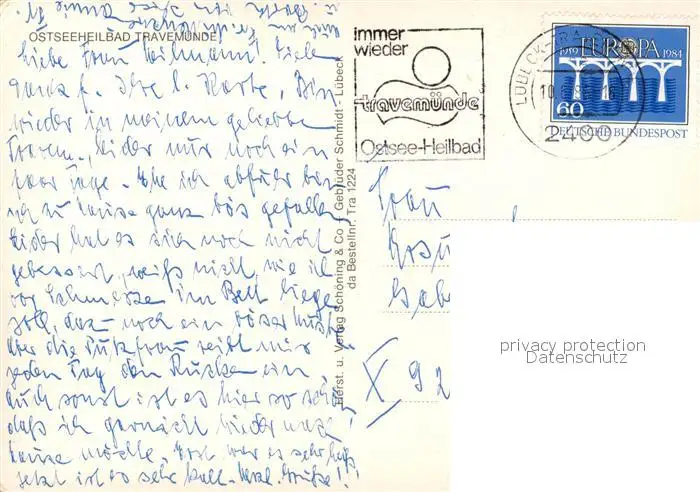 OSTSEEHEILBAD TRAVEMÜNDE
Liebe Frau Heilmann! Viele
Dank f. Ihre l. Karte, Bin
wieder in meinem geliebten
Traven. leider nur noch ein
paar Tage. Ehe ich abfuhr bin
ich zu Hause ganz bös gefallen,
leider hat es sich noch nicht
gebessert, weiß nicht, wie ich
vor Schmerzen im Bett liegen
soll, dazu noch ein böser Husten
Aber die Putzfrau reibt mir
jeden Tag den Rücken ein
Auch sonst ist es hier so schön,
daß ich garnicht wieder nach
Hause möchte. Erst war es sehr heiß
jetzt ist es sehr kalt. Herzl. Grüße!
Herst. u. Verlag Schöning & Co. Gebrüder Schmidt - Lübeck
da Bestellnr. Tra 1224
immer
wieder
travemünde
Ostsee-Heilbad
LÜBECK-TRAVEMÜNDE
10.8.8
2400
1959 EUROPA 1984
60
DEUTSCHE BUNDESPOST
Frau
92
privacy protection
Datenschutz